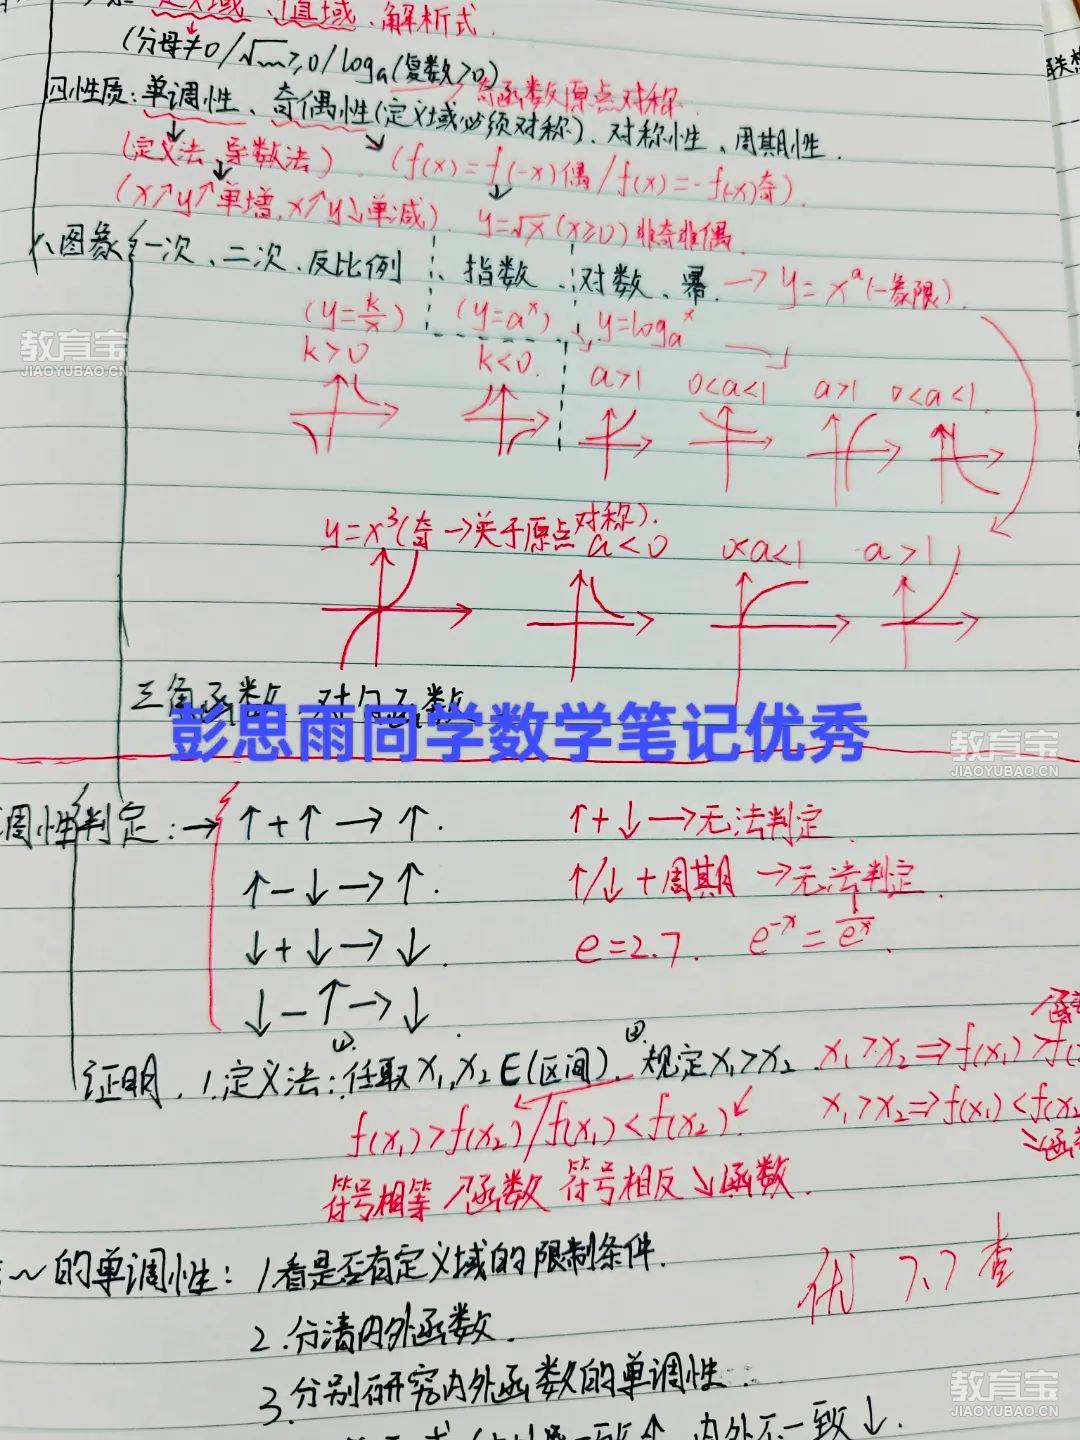 定义域、值域、解析式.
(分母≠0/√m≥0/logₐ(复数>0)
四性质:单调性、奇偶性(定义域必须对称)、对称性、周期性.
奇函数原点对称.
(定义法 导数法) (f(x)=f(-x)偶/f(x)=-f(-x)奇).
(x↗y↗单增,x↗y↓单减). y=√x(x≥0)非奇非偶.
图象{一次、二次、反比例、指数、对数、幂.→y=xᵃ(一象限).
(y=k/x) (y=aˣ) y=logₐˣ
k>0 k<0. a>1 0<a<1 a>1 0<a<1.
y=x³(奇→关于原点对称).
a<0 0<a<1 a>1
三角函数、对勾函数
彭思雨同学数学笔记优秀
教育宝
JIAOYUBAO.CN
教育宝
JIAOYUBAO.CN
调性判定:→ ↑+↑→↑. ↑+↓→无法判定.
↑-↓→↑. ↑/↓+周期→无法判定.
↓+↓→↓. e=2.7. e⁻ˣ=1/eˣ.
↓-↑→↓.
证明.1.定义法:①任取x₁,x₂∈(区间).②规定x₁>x₂. x₁>x₂⇒f(x₁)>f(
f(x₁)>f(x₂)/f(x₁)<f(x₂). x₁>x₂⇒f(x₁)<f(x₂
符号相等↗函数 符号相反↘函数. ↘函
~的单调性:1.看是否有定义域的限制条件.
优 7.7 查
2.分清内外函数.
3.分别研究内外函数的单调性.
教育宝
JIAOYUBAO.CN
一致↑,内外不一致↓.